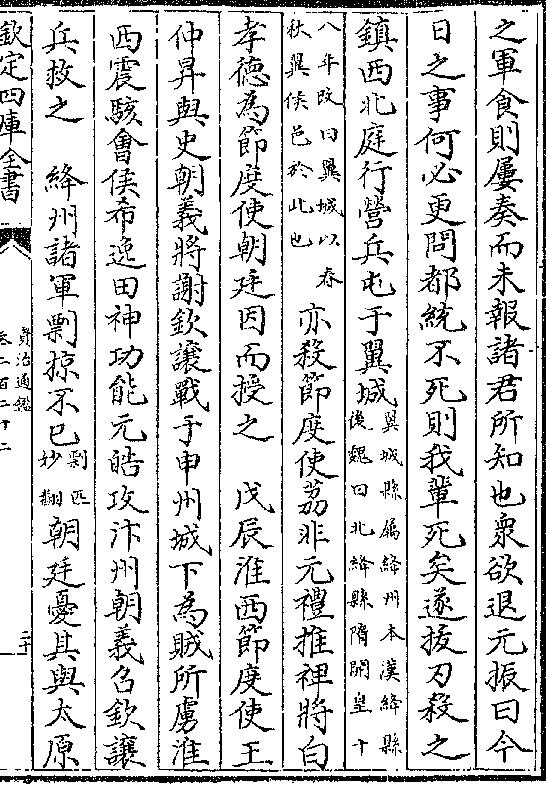 之軍食則屢奏而未報諸君所知也衆欲退元振曰今
日之事何必更問都統不死則我輩死矣遂拔刃殺之
鎮西北庭行營兵屯于翼城翼城縣屬絳州本漢絳縣後魏曰北絳縣隋開皇十
八年改曰翼城以春秋翼侯邑於此也亦殺節度使荔非元禮推裨將白
孝德為節度使朝廷因而授之　戊辰淮西節度使王
仲昇與史朝義將謝欽讓戰于申州城下為賊所虜淮
西震駭會侯希逸田神功能元皓攻汴州朝義召欽讓
兵救之　絳州諸軍剽掠不已剽匹妙翻朝廷憂其與太原
欽定四庫全書
資治通鑑
卷二百二十二
二十